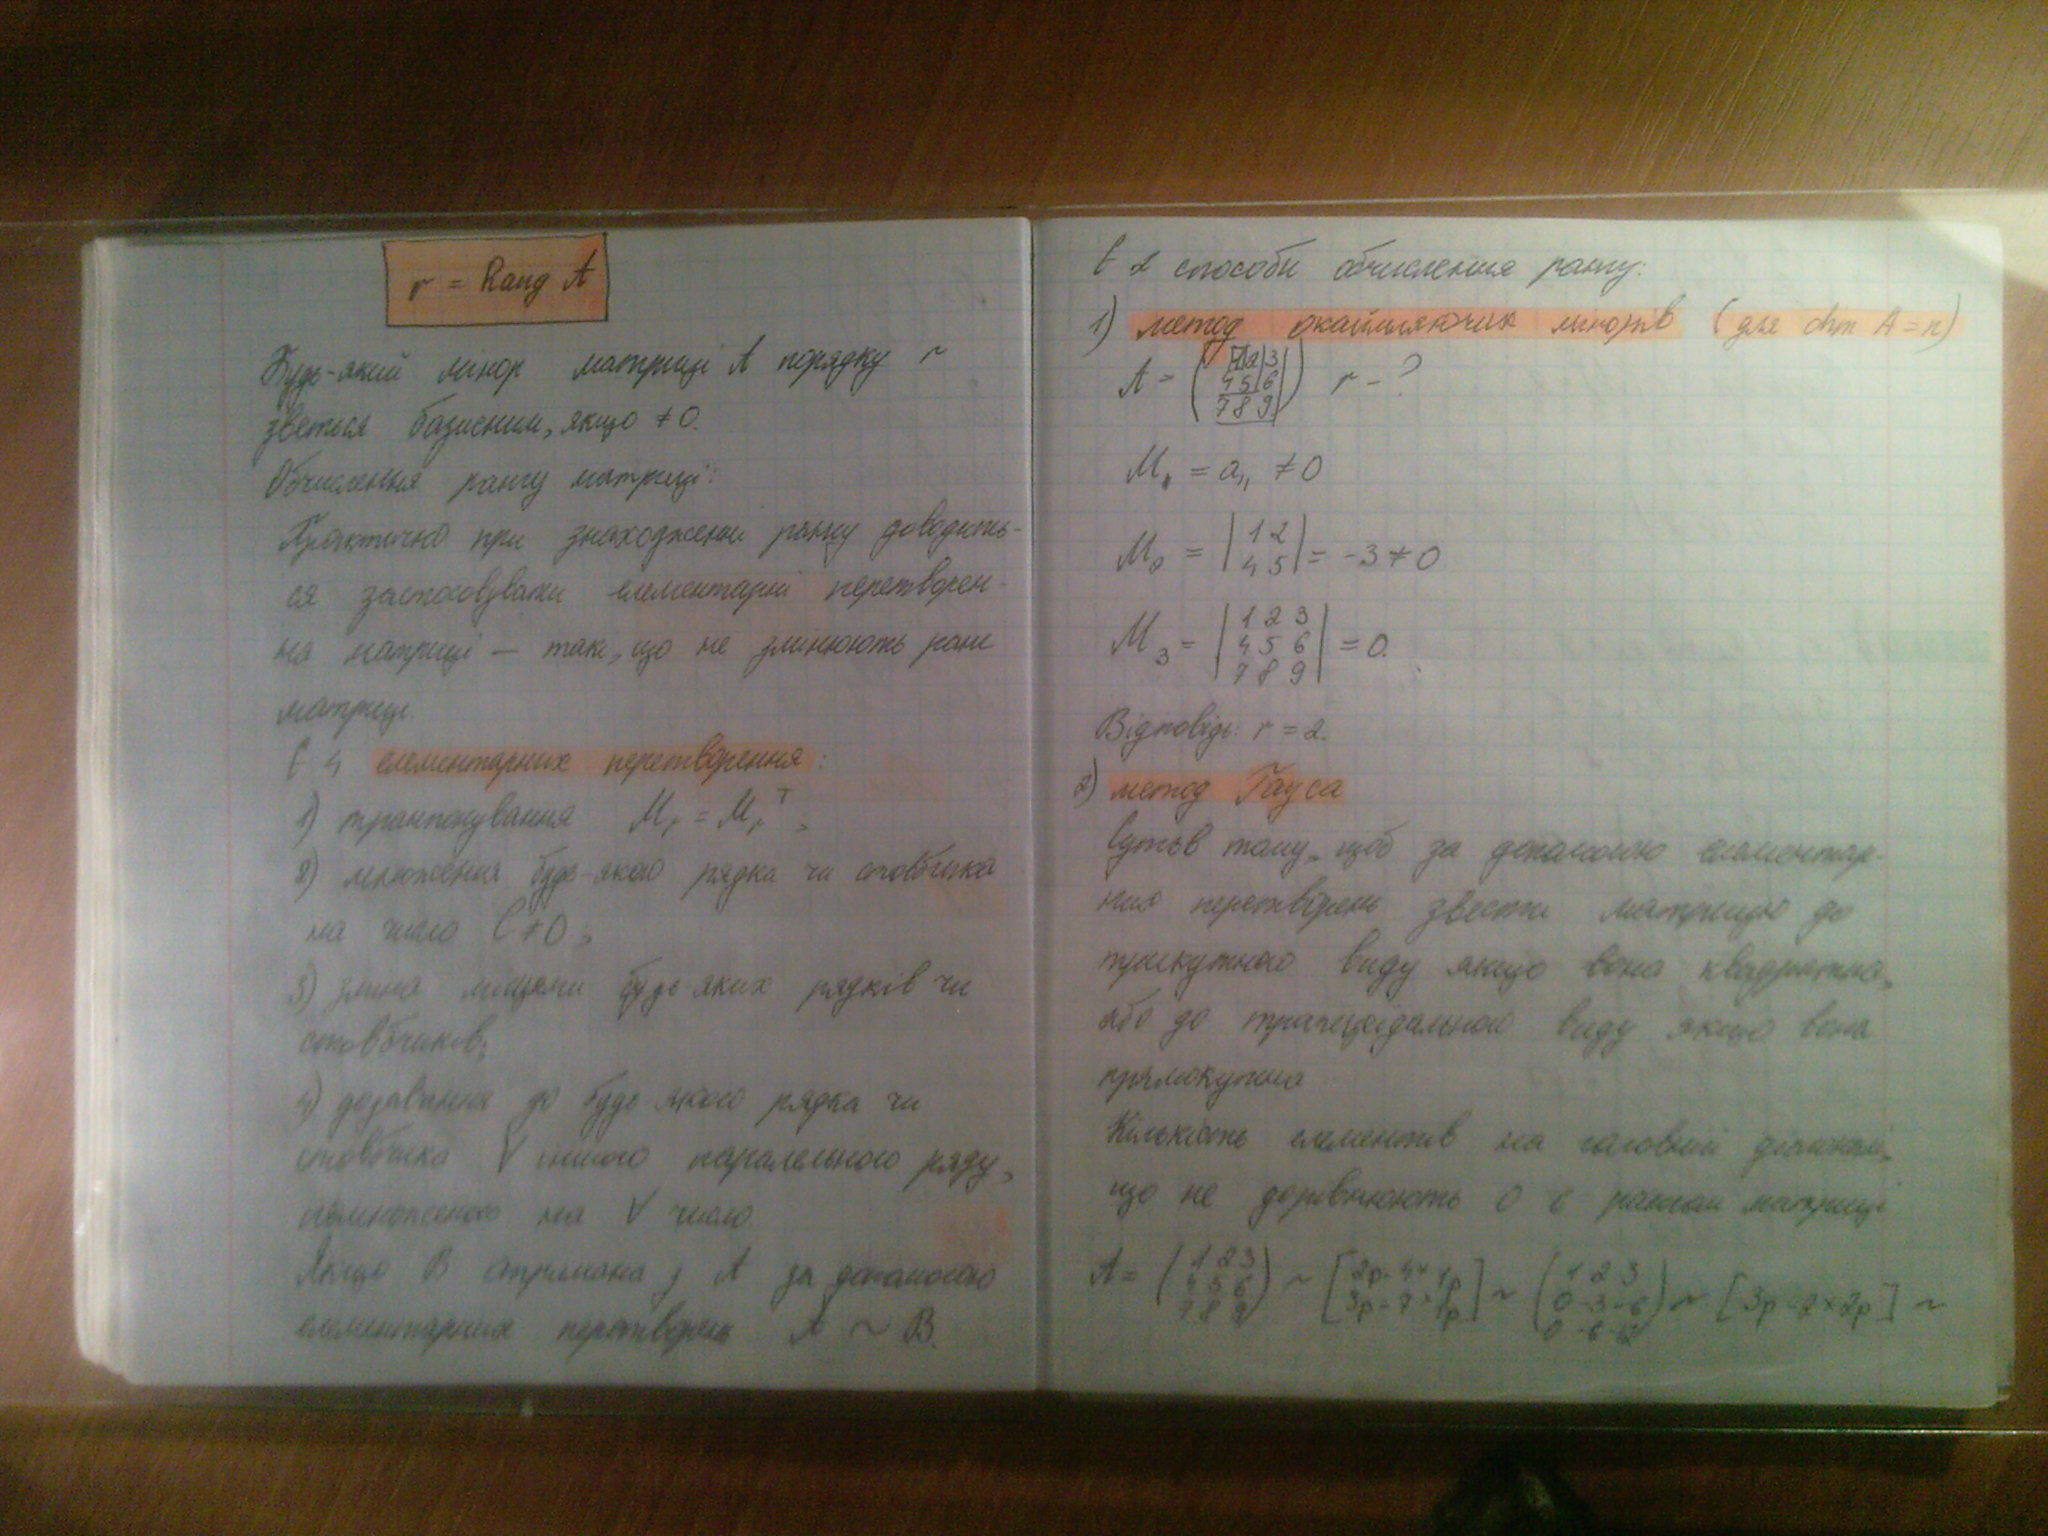 r = Rang A
Будь-який мінор матриці A порядку r
зветься базисним, якщо ≠ 0.
Обчислення рангу матриці:
Практично при знаходженні рангу доводить-
ся застосовувати елементарні перетворен-
на матриці — такі, що не змінюють ранг
матриці.
Є 4 елементарних перетворення:
1) транпонування M_r = M_r^T,
2) множення будь-якого рядка чи стовбчика
на число C ≠ 0,
3) зміна місцями будь-яких рядків чи
стовбчиків;
4) додавання до будь якого рядка чи
стовбчика ∀ іншого паралельного ряду,
помноженого на ∀ число.
Якщо B отримана з A за допомогою
елементарних перетворень A ~ B.
Є 2 способи обчислення рангу:
1) метод окаймляючих мінорів (для dim A = n)
A = (1 2 3
4 5 6
7 8 9) r - ?
M₁ = a₁₁ ≠ 0
M₂ = |1 2
4 5| = -3 ≠ 0
M₃ = |1 2 3
4 5 6
7 8 9| = 0.
Відповідь: r = 2.
2) метод Гауса
Суть в тому, щоб за допомогою елементар-
них перетворень звести матрицю до
трикутного виду якщо вона квадратна,
або до трапецоїдального виду якщо вона
прямокутна
Кількість елементів на головній діагоналі,
що не дорівнюють 0 є рангом матриці
A = (1 2 3
4 5 6
7 8 9) ~ [2р - 4 × 1р
3р - 7 × 1р] ~ (1 2 3
0 -3 -6
0 -6 -12) ~ [3р - 2 × 2р] ~